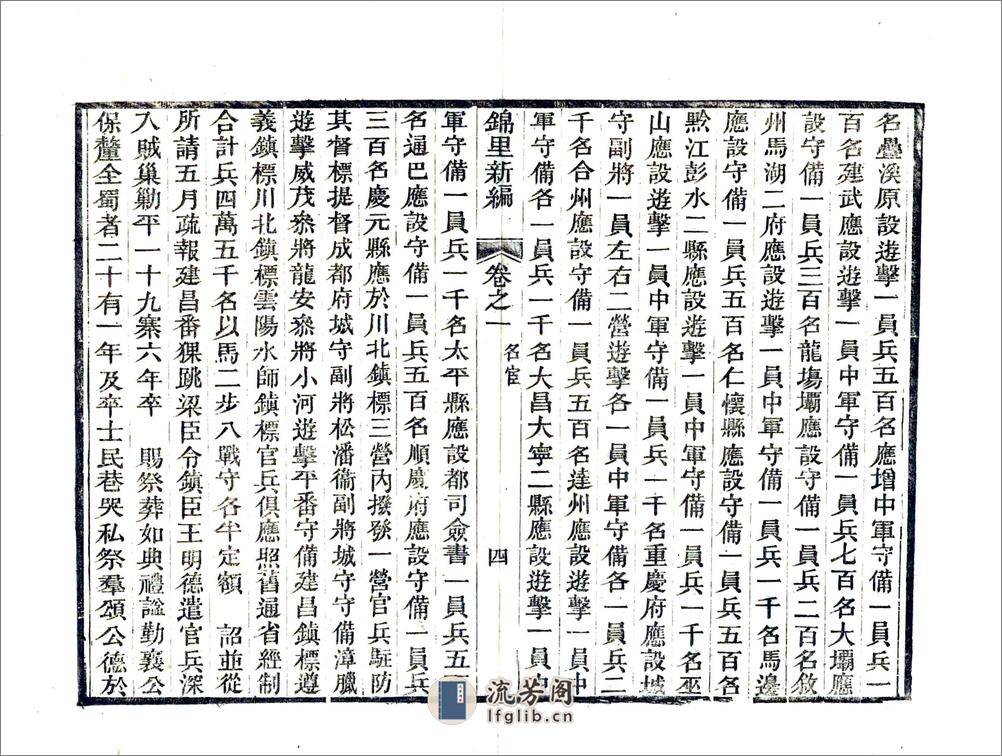 名疊溪原設遊擊一員兵五百名應增中軍守備一員兵一
百名建武應設遊擊一員中軍守備一員兵七百名大壩應
設守備一員兵三百名龍塲壩應設守備一員兵二百名敘
州馬湖二府應設遊擊一員中軍守備一員兵一千名馬邊
應設守備一員兵五百名仁懷縣應設守備一員兵五百名
黔江彭水二縣應設遊擊一員中軍守備一員兵一千名巫
山應設遊擊一員中軍守備一員兵一千名重慶府應設城
守副將一員左右二營遊擊各一員中軍守備各一員兵二
千名合州應設守備一員兵五百名達州應設遊擊一員中
軍守備各一員兵一千名大昌大寧二縣應設遊擊一員中
錦里新編 卷之一 名宦 四
軍守備一員兵一千名太平縣應設都司僉書一員兵五
名通巴應設守備一員兵五百名順慶府應設守備一員兵
三百名慶元縣應於川北鎮標三營內撥發一營官兵駐防
其督標提督成都府城守副將松潘衞副將城守守備漳臘
遊擊威茂叅將龍安叅將小河遊擊平番守備建昌鎮標遵
義鎮標川北鎮標雲陽水師鎮標官兵俱應照舊通省經制
合計兵四萬五千名以馬二步八戰守各半定額 詔並從
所請五月疏報建昌番猓跳梁臣令鎮臣王明德遣官兵深
入賊巢勦平一十九寨六年卒 賜祭葬如典禮謚勤襄公
保釐全蜀者二十有一年及卒士民巷哭私祭羣頌公德於
流芳阁
lfglib.cn